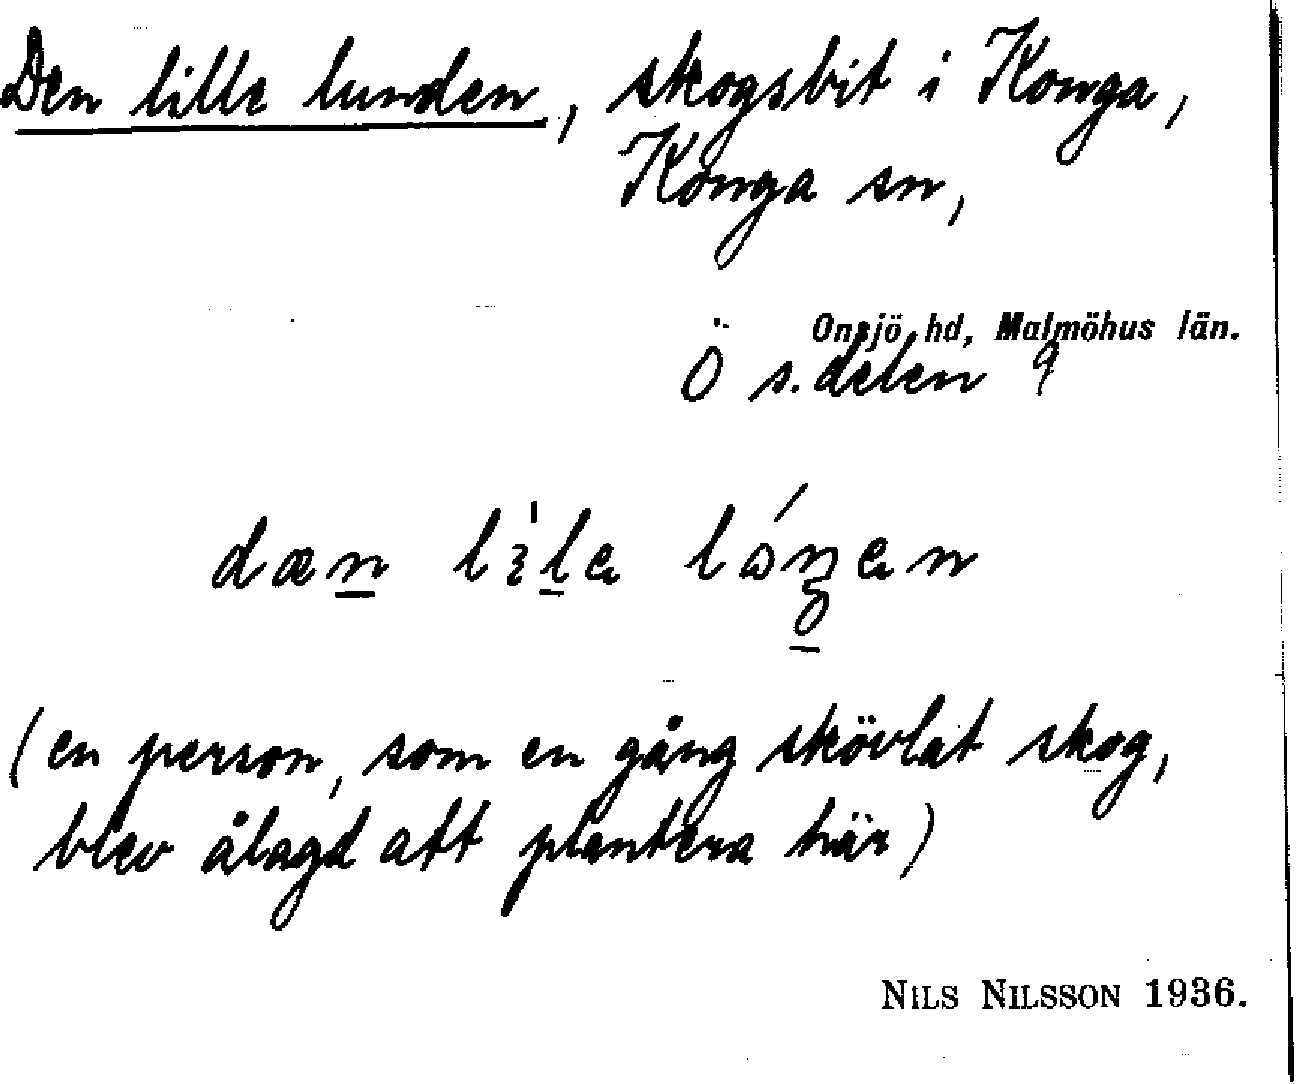 Den lille lunden, skogsbit i Konga,
Konga sn,
Onsjö hd, Malmöhus län.
Ö s. delen 9
(en person, som en gång skövlat skog,
blev ålagd att plantera här)
NILS NILSSON 1936.